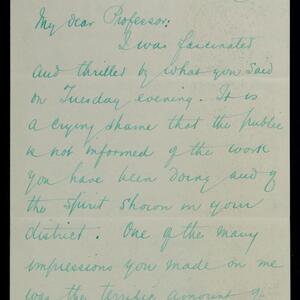 My dear Professor:
I was fascinated
and thrilled by what you said
on Tuesday evening. It is
a crying shame that the public
is not informed of the work
you have been doing and of
the spirit shown in your
district. One of the many
impressions you made on me
was the terrific amount of